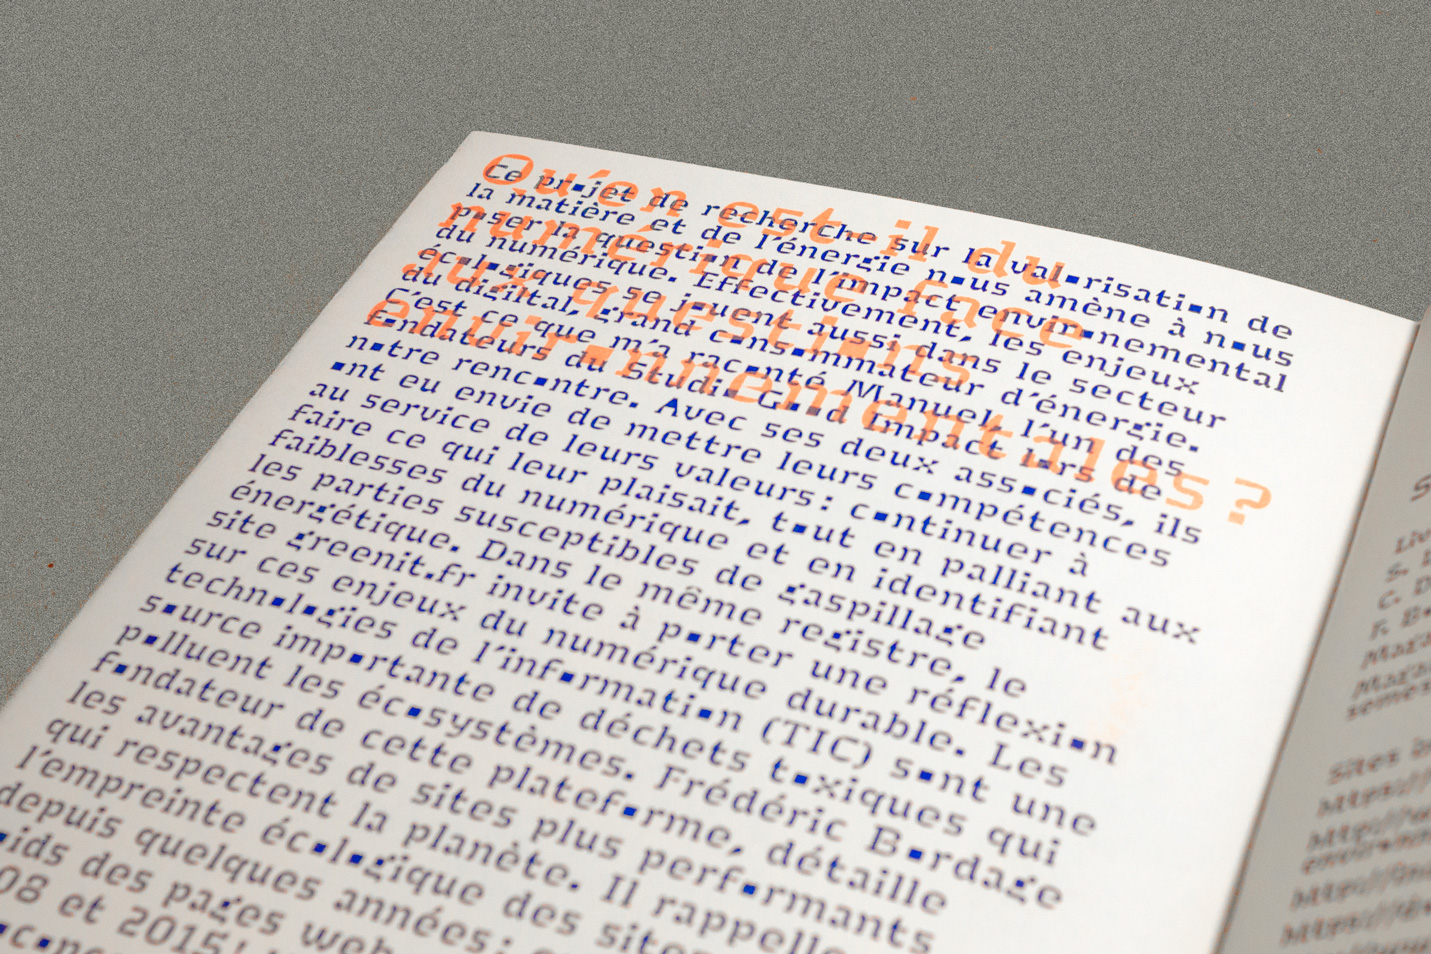 Qu'en est-il du
numérique face
aux questions
environnementales ?
Ce projet de recherche sur la valorisation de
la matière et de l'énergie nous amène à nous
poser la question de l'impact environnemental
du numérique. Effectivement, les enjeux
écologiques se jouent aussi dans le secteur
du digiltal, grand consommateur d'énergie.
C'est ce que m'a raconté Manuel, l'un des
fondateurs du Studio Good Impact lors de
notre rencontre. Avec ses deux associés, ils
ont eu envie de mettre leurs compétences
au service de leurs valeurs: continuer à
faire ce qui leur plaisait, tout en palliant aux
faiblesses du numérique et en identifiant
les parties susceptibles de gaspillage
énergétique. Dans le même registre, le
site greenit.fr invite à porter une réflexion
sur ces enjeux du numérique durable. Les
technologies de l'information (TIC) sont une
source importante de déchets toxiques qui
polluent les écosystèmes. Frédéric Bordage
fondateur de cette plateforme, détaille
les avantages de sites plus performants
qui respectent la planète. Il rappelle
l'empreinte écologique des sites
depuis quelques années:
oids des pages web
08 et 2015!